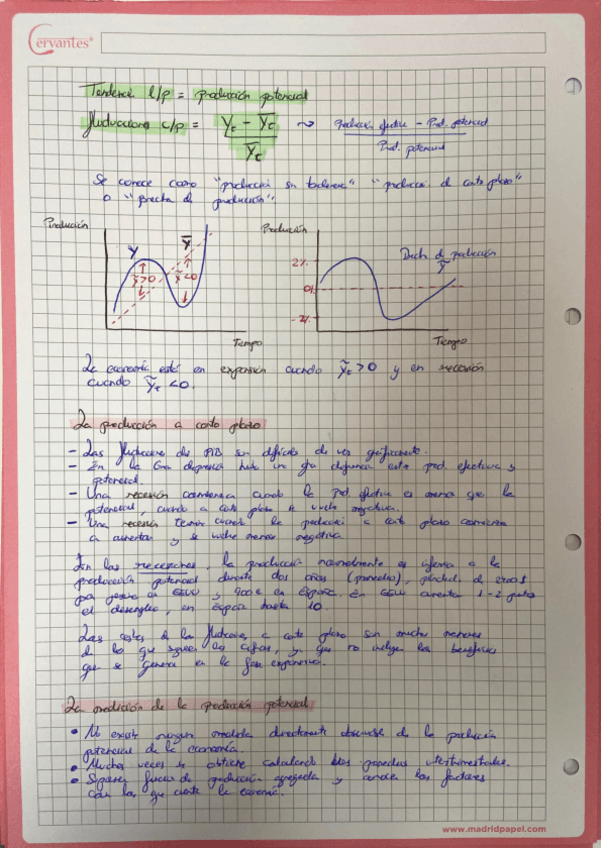 Cervantes
Tendencia l/p = producción potencial
fluctuaciones c/p = (Yt − Ȳt) / Ȳt ⇝ Producción efectiva − Prod. potencial / Prod. potencial
Se conoce como "producción sin tendencia" "producción a corto plazo"
o "brecha de producción".
Producción
Y
Ȳ
Ỹ>0
Ỹ<0
Tiempo
Producción
2%
0%
-2%
Brecha de producción
Ỹ
Tiempo
La economía está en expansión cuando Ỹt > 0 y en recesión
cuando Ỹt < 0.
La producción a corto plazo
- Las fluctuaciones del PIB son difíciles de ver gráficamente.
- En la Gran depresión hubo una gran diferencia entre prod. efectiva y
potencial.
- Una recesión comienza cuando la Prod. efectiva es menor que la
potencial, cuando a corto plazo se vuelve negativa.
- Una recesión termina cuando la producción a corto plazo comienza
a aumentar y se vuelve menos negativa.
En las recesiones, la producción normalmente es inferior a la
producción potencial durante dos años (promedio), pérdida de 2700$
por persona en EEUU y 900€ en España. En EEUU aumenta 1-2 puntos
el desempleo, en España hasta 10.
Los costes de las fluctuaciones a corto plazo son mucho menores
de lo que sugieren las cifras, ya que no incluyen los beneficios
que se generan en la fase expansiva.
La medición de la producción potencial
• No existe ninguna medida directamente observable de la producción
potencial de la economía.
• Muchas veces se obtiene calculando
• Suponer función de producción agregada y conocer los factores
con los que cuenta la economía.
www.madridpapel.com